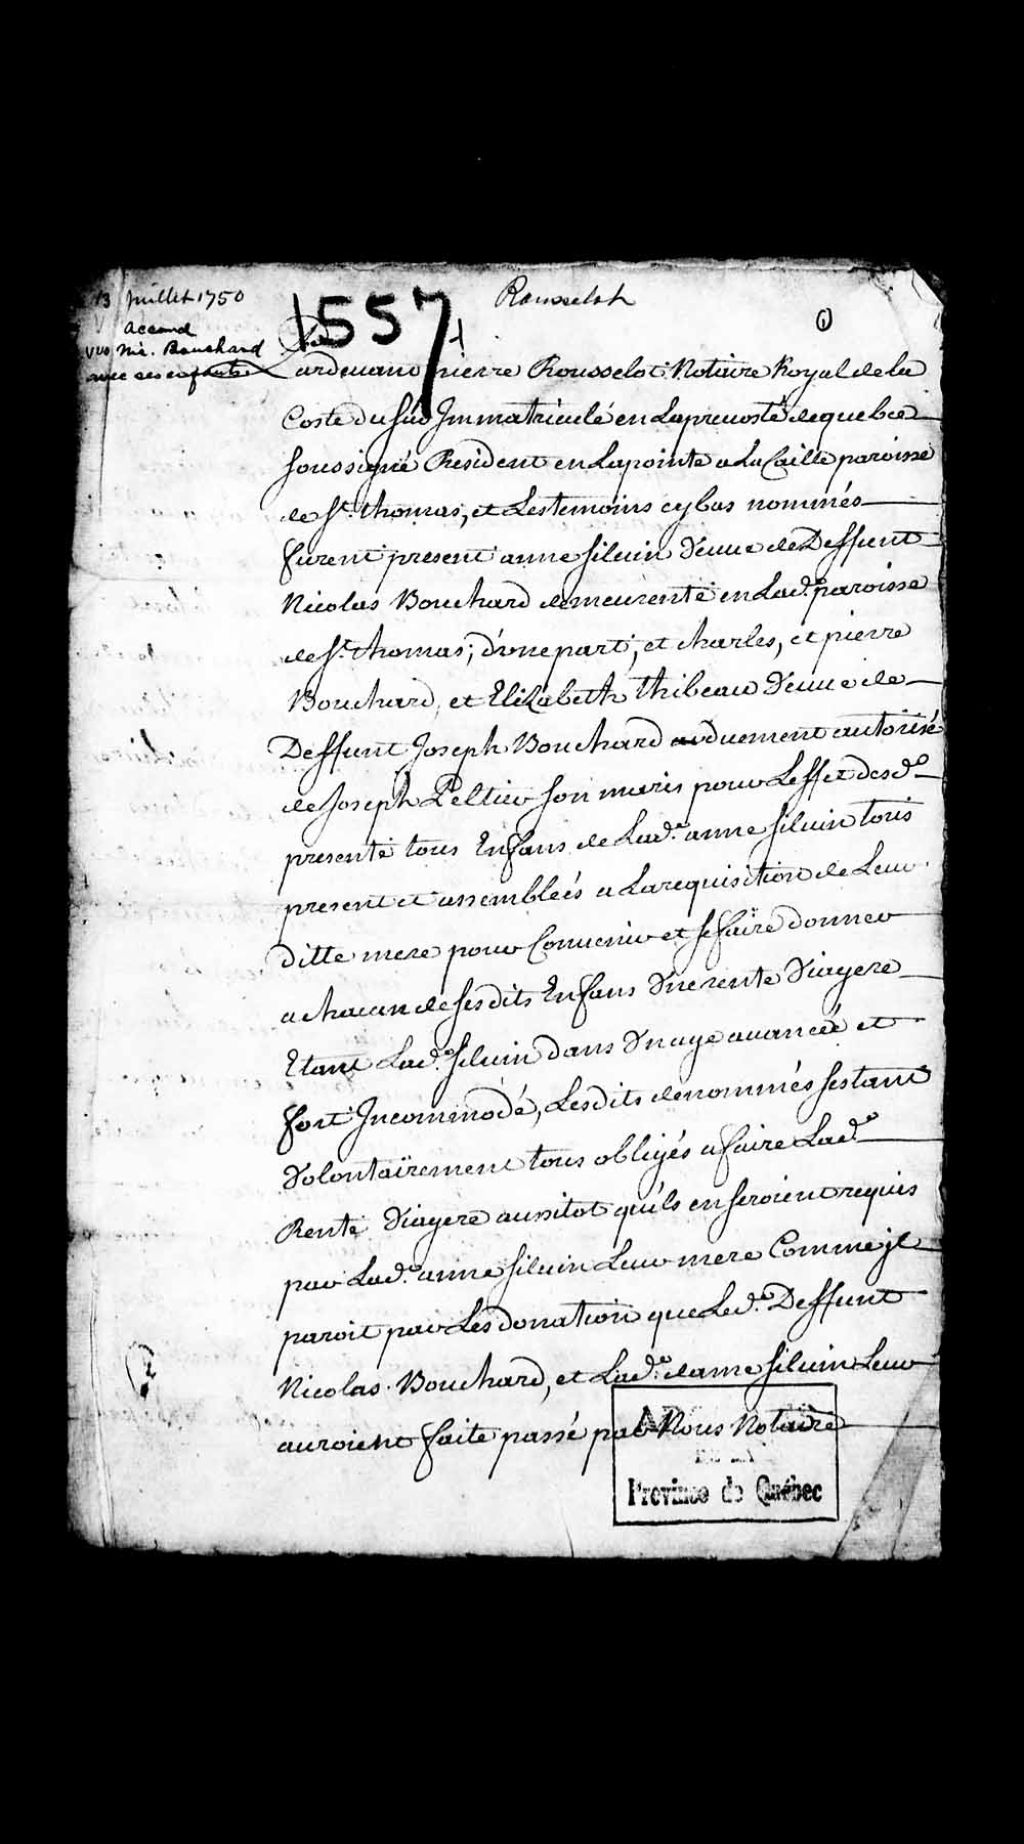 13 Juillet 1750
Accord
vve Nic. Bouchard
avec ses enfants
1557
Rousselot
1
Pardeuant pierre Rousselot Notaire Royal de la
Coste du sud Immatriculé en Lapreuosté de quebec
soussigné Resident en Lapointe a La Caille paroisse
de St. thomas, et Les temoins cy bas nommés
furent present anne siluin veuue de Deffunt
Nicolas Bouchard demeurente en Lade. paroisse
de St. thomas; d'une part, et charles, et pierre
Bouchard, et Elizabeth thibeau veuue de
Deffunt Joseph Bouchard duement autorisé
de Joseph Peltier son maris pour Leffet desde.
presente tous Enfans de Lade. anne siluin tous
present et assembleés a Larequisition de Leur
ditte mere pour Conuenir et se faire donner
a chacun de ses dits Enfans vne rente viagere
Etant Lade. siluin dans vn age auancéé et
fort Incommodé, Lesdits denommés sestant
volontairement tous obligés a faire Lade.
Rente viagere aussitot quils en seroient requis
par Lade. anne siluin Leur mere Comme jl
paroit par Les donation que Led. Deffunt
Nicolas Bouchard, et Lade. dame siluin Leur
auroient faite passé par Nous Notaire
Province de Québec
2